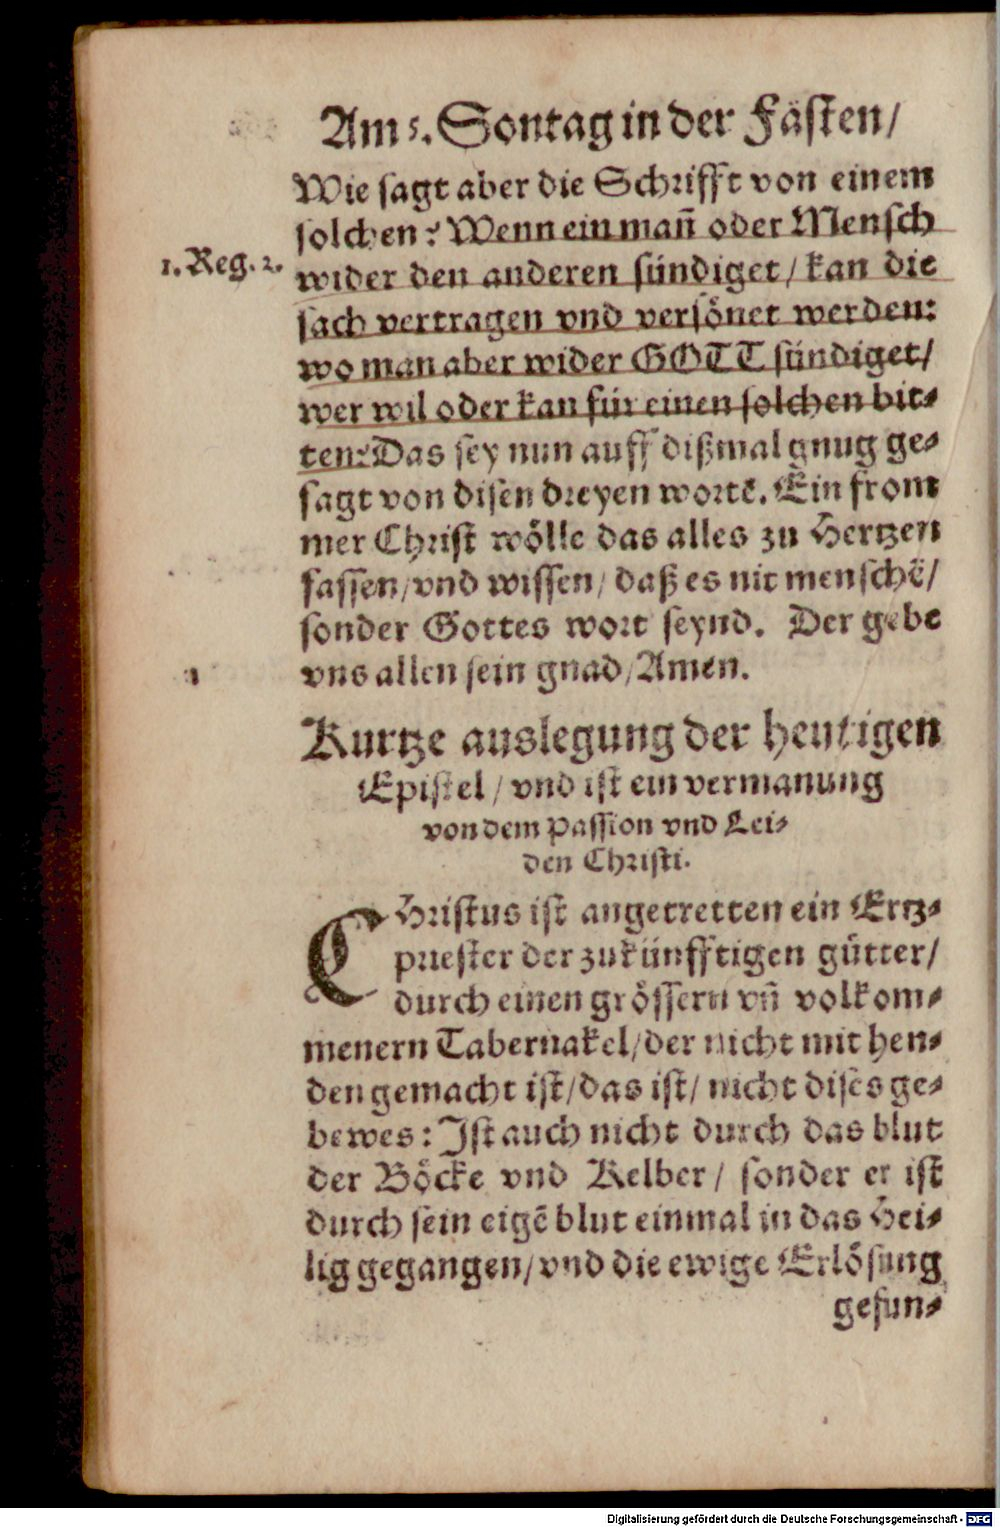 Am 5. Sontag in der Fasten/
Wie sagt aber die Schrifft von einem
solchen? Wenn ein mañ oder Mensch
1. Reg. 2.
wider den anderen sündiget/ kan die
sach vertragen vnd versönet werden:
wo man aber wider GOTT sündiget/
wer wil oder kan für einen solchen bit-
ten? Das sey nun auff dißmal gnug ge-
sagt von disen dreyen wortē. Ein from
mer Christ wölle das alles zu Hertzen
fassen/ vnd wissen/ daß es nit menschē/
sonder Gottes wort seynd. Der gebe
vns allen sein gnad/ Amen.
Kurtze auslegung der heutigen
Epistel/ vnd ist ein vermanung
von dem Passion vnd Lei-
den Christi.
CHristus ist angetretten ein Ertz-
priester der zukünfftigen gütter/
durch einen grössern vñ volkom-
menern Tabernakel/ der nicht mit hen-
den gemacht ist/ das ist/ nicht dises ge-
bewes: Ist auch nicht durch das blut
der Böcke vnd Kelber/ sonder er ist
durch sein eigē blut einmal in das Hei-
lig gegangen/ vnd die ewige Erlösung
gefun-
Digitalisierung gefördert durch die Deutsche Forschungsgemeinschaft - DFG